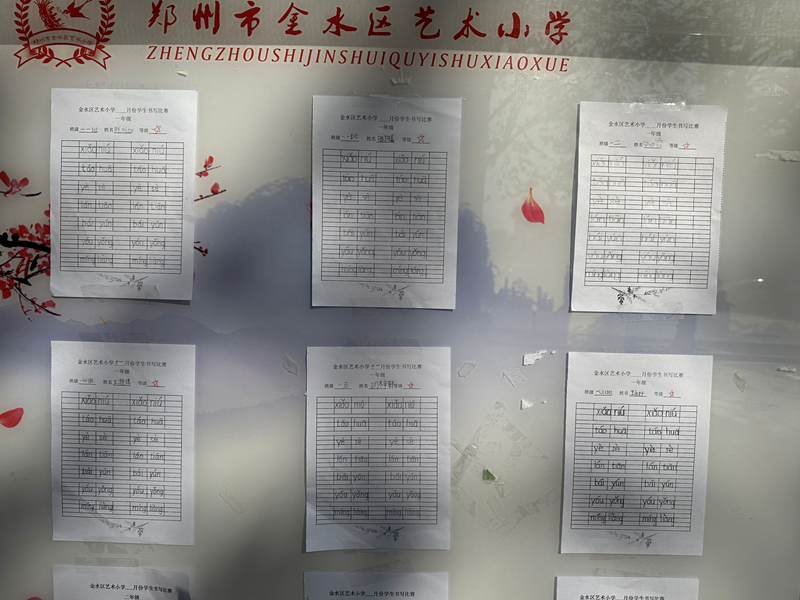 郑州市金水区艺术小学
ZHENGZHOUSHIJINSHUIQUYISHUXIAOXUE
金水区艺术小学___月份学生书写比赛
一年级
班级 姓名 等级
xiǎo niú xiǎo niú
táo huā táo huā
yè sè yè sè
lán tiān lán tiān
bái yún bái yún
yǒu yǒng yóu yǒng
míng liàng míng liàng
金水区艺术小学___月份学生书写比赛
一年级
班级 姓名 等级
xiǎo niú xiǎo niú
táo huā táo huā
yè sè yè sè
lán tiān lán tiān
bái yún bái yún
yóu yǒng yóu yǒng
míng liàng míng liàng
金水区艺术小学___月份学生书写比赛
一年级
班级 一二 姓名 等级
xiǎo niú xiǎo niú
táo huā táo huā
yè sè yè sè
lán tiān lán tiān
bái yún bái yún
yóu yǒng yóu yǒng
míng liàng míng liàng
金水区艺术小学十一月份学生书写比赛
一年级
班级 一四 姓名 等级
xiǎo niú xiǎo niú
táo huā táo huā
yè sè yè sè
lán tiān lán tiān
bái yún bái yún
yóu yǒng yóu yǒng
míng liàng míng liàng
金水区艺术小学十一月份学生书写比赛
一年级
班级 一三 姓名 等级
xiǎo niú xiǎo niú
táo huā táo huā
yè sè yè sè
lán tiān lán tiān
bái yún bái yún
yóu yǒng yóu yǒng
míng liàng míng liàng
金水区艺术小学___月份学生书写比赛
一年级
班级 姓名 等级
xiǎo niú xiǎo niú
táo huā táo huā
yè sè yè sè
lán tiān lán tiān
bái yún bái yún
yóu yǒng yóu yǒng
míng liàng míng liàng
金水区艺术小学___月份学生书写比赛
二年级
金水区艺术小学___月份学生书写比赛
金水区艺术小学___月份学生书写比赛